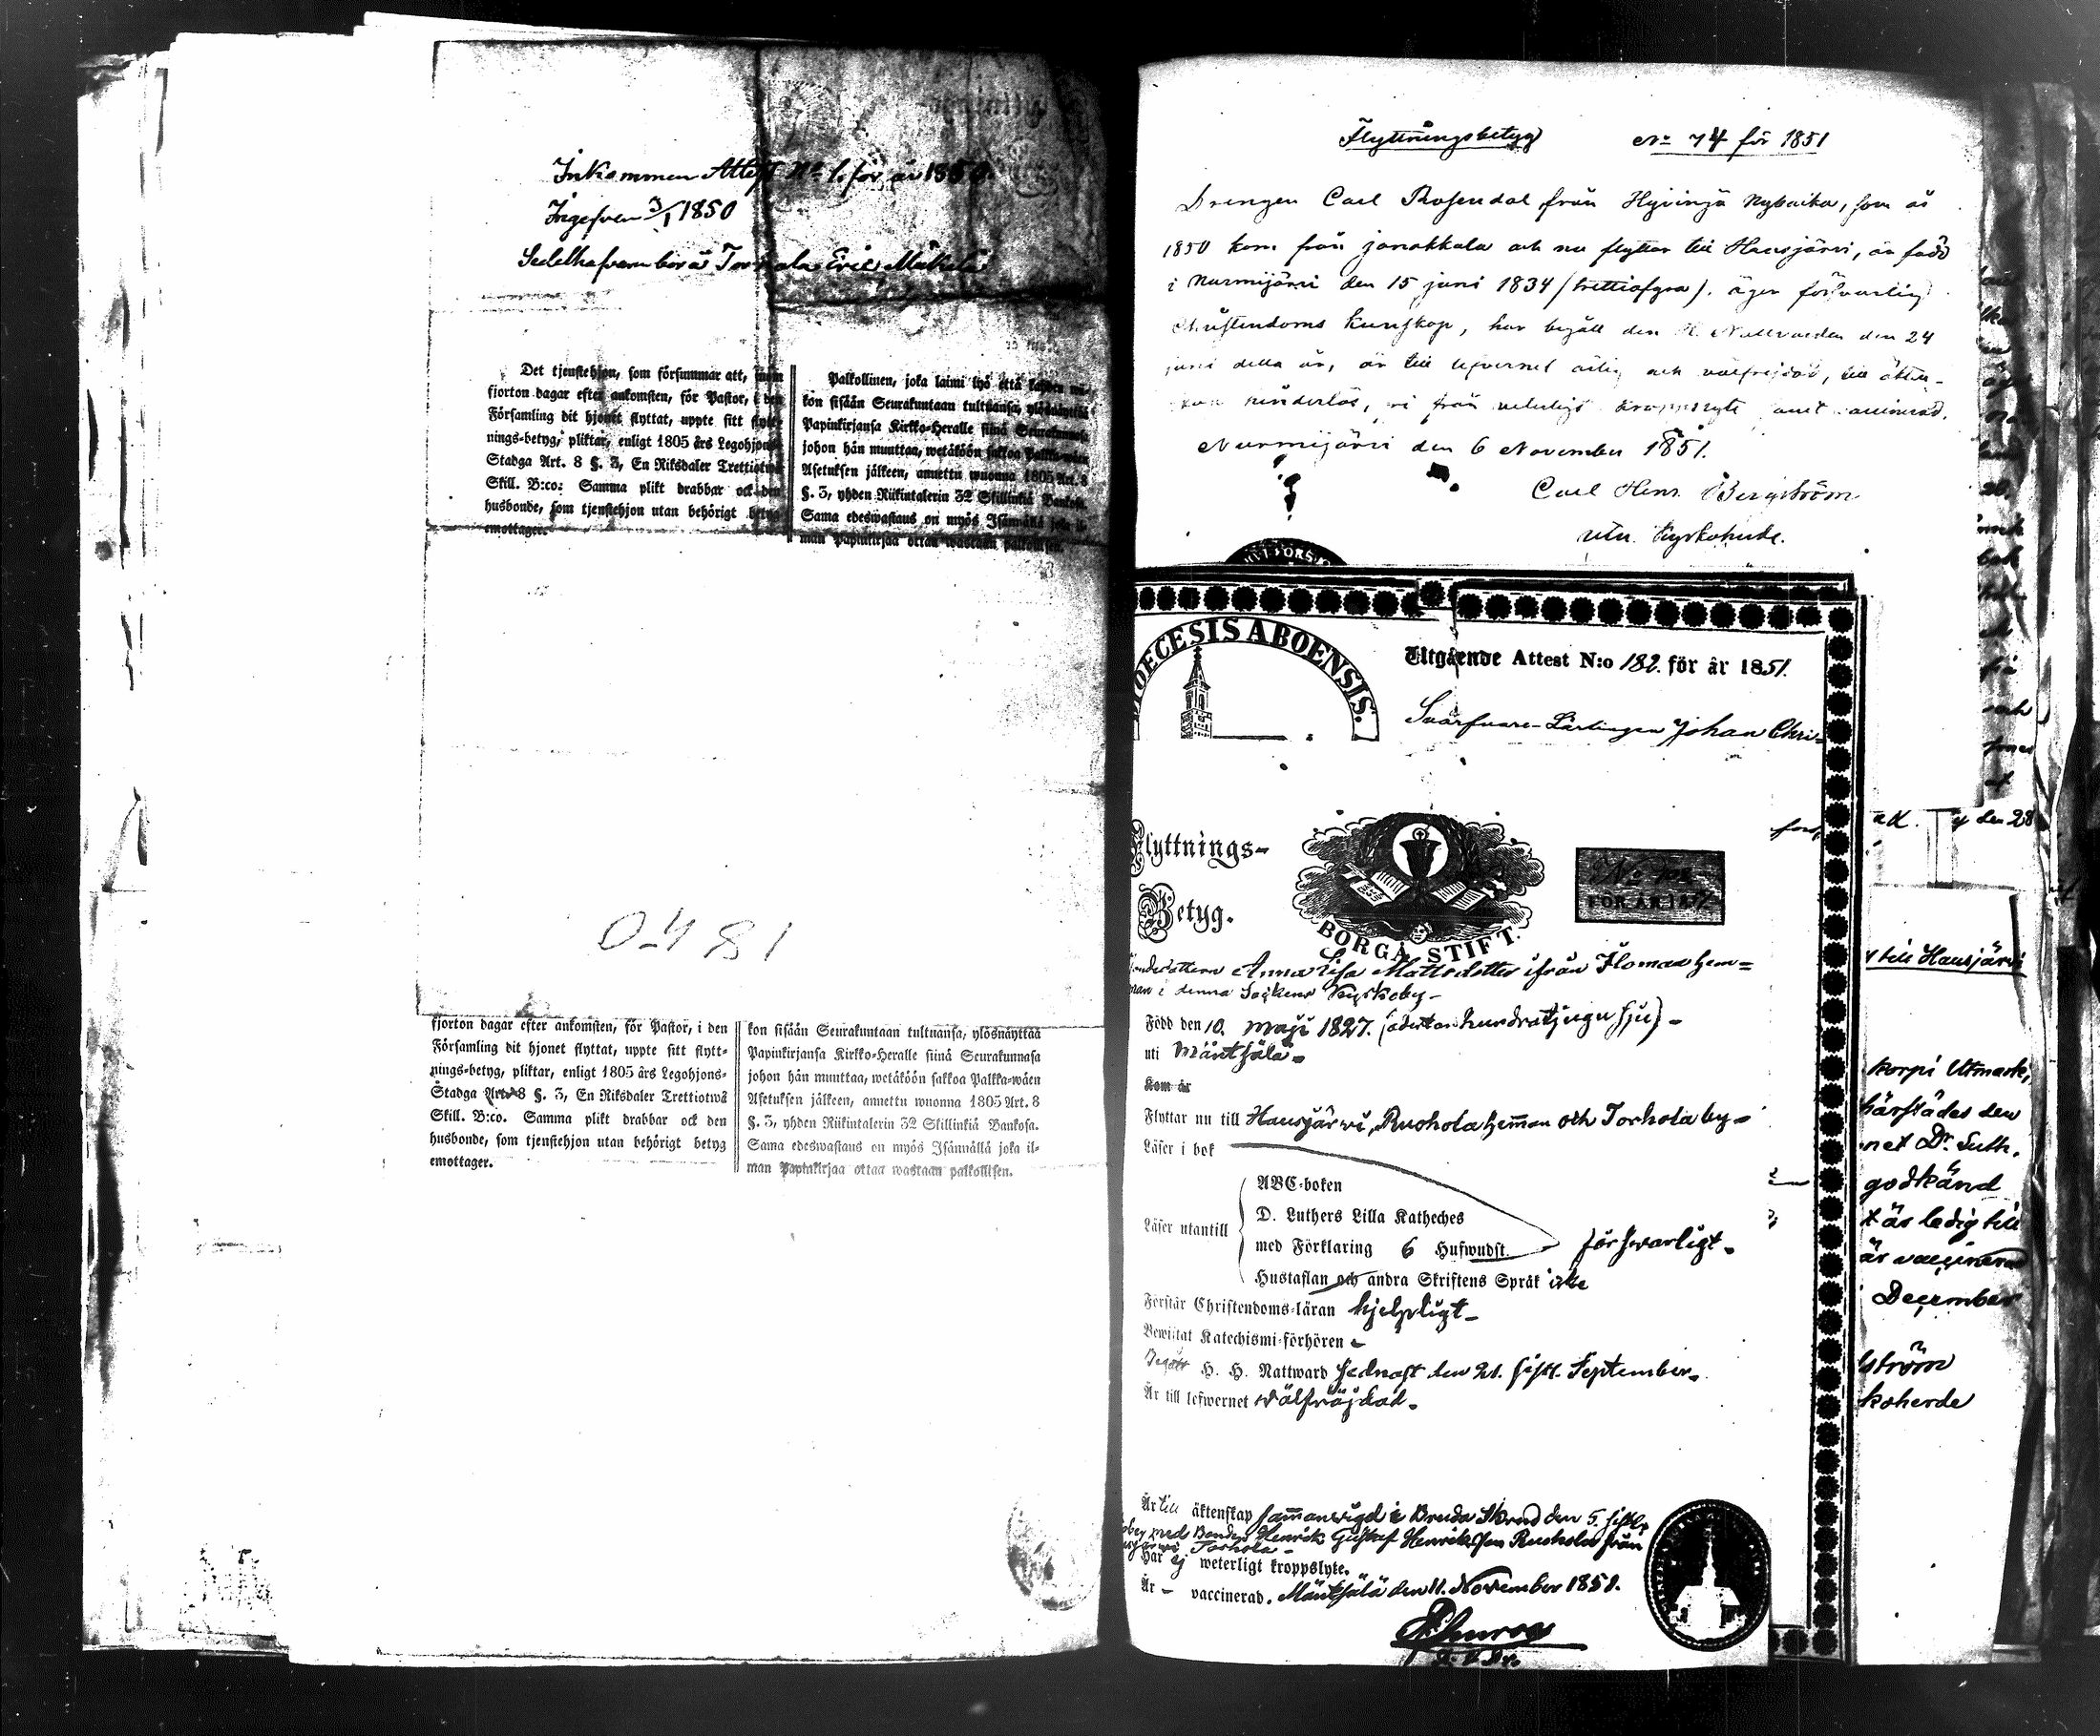 Inkommen Attest No 1. för år 1850.
Ingifven 3/1 1850
Sedelhafvaren bor å Torhola Eric Mäkelä
Det tjenstehjon, som försummar att, inom
fjorton dagar efter ankomsten, för Pastor, i den
Församling dit hjonet flyttat, uppte sitt flytt-
nings-betyg, pliktar, enligt 1805 års Legohjons-
Stadga Art. 8 §. 3, En Riksdaler Trettiotwå
Skill. B:co: Samma plikt drabbar ock den
husbonde, som tjenstehjon utan behörigt betyg
emottager.
Palkollinen, joka laimi lyö että kahden wii-
kon sisään Seurakuntaan tultuansa, ylösnäyttää
Papinkirjansa Kirkko-Heralle siinä Seurakunnasa
johon hän muuttaa, wetäköön sakkoa Palkka-wäen
Asetuksen jälkeen, annettu wuonna 1805 Art. 8
§. 3, yhden Riikintalerin 32 Skillinkiä Bankosa.
Sama edeswastaus on myös Isännällä joka il-
man Papinkirjaa ottaa wastaan palkollisen.
0481
fjorton dagar efter ankomsten, för Pastor, i den
Församling dit hjonet flyttat, uppte sitt flytt-
nings-betyg, pliktar, enligt 1805 års Legohjons-
Stadga Art. 8 §. 3, En Riksdaler Trettiotwå
Skill. B:co. Samma plikt drabbar ock den
husbonde, som tjenstehjon utan behörigt betyg
emottager.
kon sisään Seurakuntaan tultuansa, ylösnäyttää
Papinkirjansa Kirkko-Heralle siinä Seurakunnasa
johon hän muuttaa, wetäköön sakkoa Palkka-wäen
Asetuksen jälkeen, annettu wuonna 1805 Art. 8
§. 3, yhden Riikintalerin 32 Skillinkiä Bankosa.
Sama edeswastaus on myös Isännällä joka il-
man Papinkirjaa ottaa wastaan palkollisen.
Flyttningsbetyg No 74 för 1851
Drengen Carl Rosendal från Hyvingä Nybacka, som år
1850 kom från Janakkala och nu flyttar till Hausjärvi, är född
i Nurmijärvi den 15 juni 1834 (trettiofyra). äger försvarlig
Christendoms kunskap, har begått den H. Nattvarden den 24
juni detta år, är till lefvernet ärlig och välfrejdad, till äkten-
skap hinderlös, fri från veterligt kroppslyte samt vaccinerad.
Nurmijärvi den 6 November 1851.
Carl Henr. Bergström
utn. Kyrkoherde.
DIOECESIS ABOENSIS.
Utgående Attest N:o 182. för år 1851.
Swarfvare-Lärlingen Johan Chri-
Flyttnings-
Betyg.
BORGÅ STIFT.
FÖR ÅR 18
Bondedottern Anna Lisa Mattsdotter ifrån Ilomaa hem-
man i denna Sockens Kyrkoby-
Född den 10. Maji 1827. (adertonhundratjugusju)-
uti Mäntsälä-
Kom år
Flyttar nu till Hausjärwi, Ruohola hemman och Torhola by-
Läser i bok
Läser utantill
ABC-boken
D. Luthers Lilla Katheches
med Förklaring 6 Hufwudst.
Hustaflan och andra Skriftens Språk icke
försvarligt.
Förstår Christendoms-läran hjelpligt-
Bewistat Katechismi-förhören -
Begått H. H. Nattward sednast den 21. sistl. September.
Är till lefwernet wälfräjdad.
Är till äktenskap sammanvigd i Bruda Stond den 5. sistl.
med Bonden Henrik Gustaf Henriksson Ruohola från
Torhola-
Har ej weterligt kroppslyte.
Är - vaccinerad. Mäntsälä den 11. November 1851.
y den 28
till Hausjärvi
korpi Utmark,
härstädes den
net Dr. Luth.
godkänd
t är ledig till
är vaccinerad
December
ström
koherde